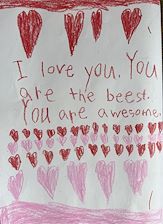 I love you. You
are the beest.
You are awesome.